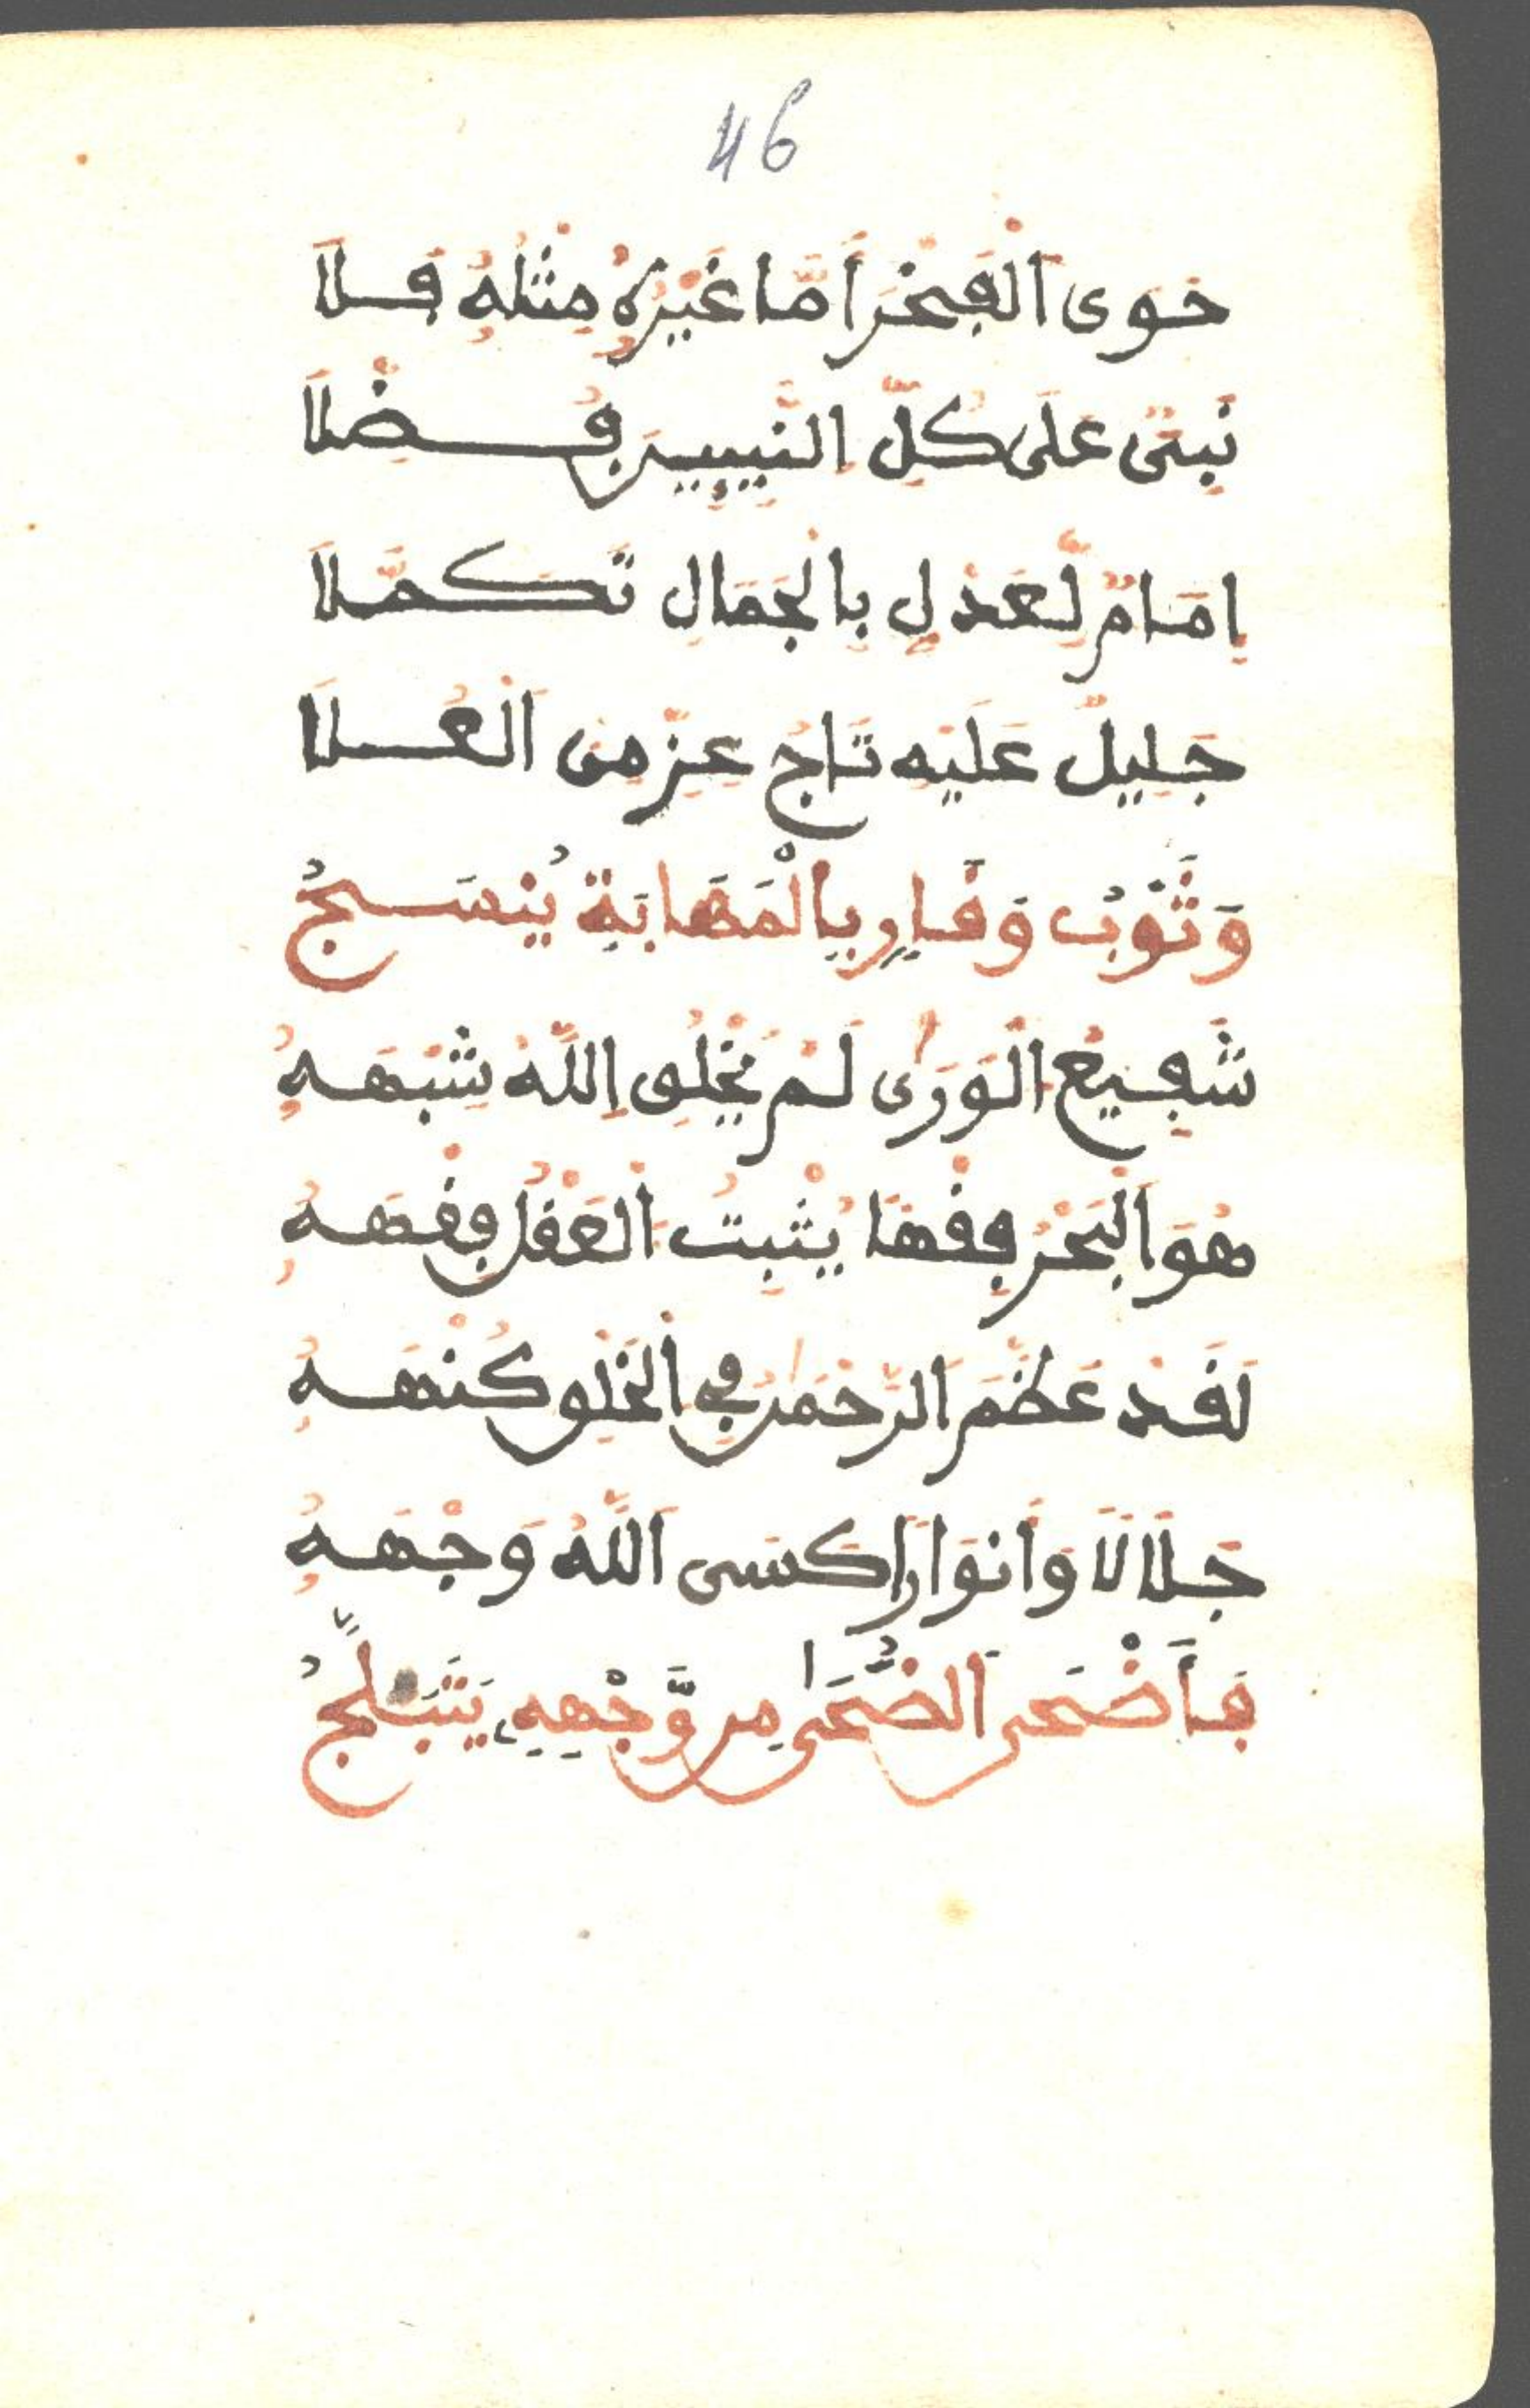 46
حَوَى اَلْفَخْرَ أَمَّا غَيْرُهُ مِثْلُهُ فَلَا
نَبِىٌّ عَلَى كُلِّ اِلنَّبِيِيـنَ فُـضِّلَا
اِمَامٌ لِّعَدْلٍ بِالْجَمَالِ تَكَمَّلَا
جَلِيلٌ عَلَيْهِ تَاجُ عِزٍّ مِنَ اَلْعُـلَا
وَثَوْبُ وَقَارٍ بِالْمَهَابَةِ يُنْسَـجُ
شَفِيعُ اَلْوَرَى لَمْ يَخْلُقِ اِللَّهُ شِبْهَـهُ
هُوَ اَلْبَحْرُ فِقْهًا يُثْبِتُ اَلْعَقْلُ فِقْهَـهُ
لَقَدْ عَظَّمَ اَلرَّحْمَنُ فِي اِلْخَلْقِ كُنْهَـهُ
جَلَالًا وَأَنْوَارًا كَسَى اَللَّهُ وَجْهَـهُ
فَأَضْحَى اَلضُّحَى مِن وَّجْهِهِ يَتَبَلَّجُ